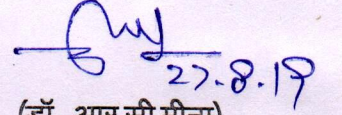 27.8.19
(डॉ. आर.सी.मीना)